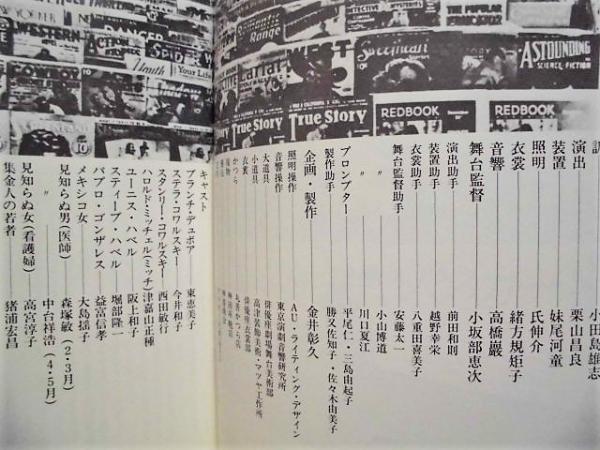 NEW YORKER
DANGER
Romantic Range
WEST
Sweetheart
THE POPULAR
ASTOUNDING
SCIENCE FICTION
ACTION
SPIDER
Youth
Your Life
COWBOY
True Story
True Story
REDBOOK
REDBOOK
訳 小田島雄志
演出 栗山昌良
装置 妹尾河童
照明 氏伸介
衣裳 緒方規矩子
音響 高橋巖
舞台監督 小坂部恵次
演出助手 前田和則
装置助手 越野幸栄
衣裳助手 八重田喜美子
舞台監督助手 安藤太一
〃 小山博道
〃 川口夏江
プロンプター 平尾仁・三島由起子
製作助手 勝又佐知子・佐々木由美子
企画・製作 金井彰久
照明操作 AU・ライティング・デザイン
音響操作 東京演劇音響研究所
大道具 俳優座劇場舞台美術部
小道具 高津装飾美術・マツヤ工作所
衣裳 俳優座衣裳部
かつら 丸善かつら店
キャスト
ブランチ・デュボア 東恵美子
ステラ・コワルスキー 今井和子
スタンリー・コワルスキー 西田敏行
ハロルド・ミッチェル(ミッチ) 津嘉山正種
ユーニス・ハベル 阪上和子
スティーブ・ハベル 堀部隆一
パブロ・ゴンザレス 益富信孝
メキシコ女 大島揺子
見知らぬ男(医師) 森塚敏(2・3月)
〃 中台祥浩(4・5月)
見知らぬ女(看護婦) 高宮淳子
集金人の若者 猪浦宏昌